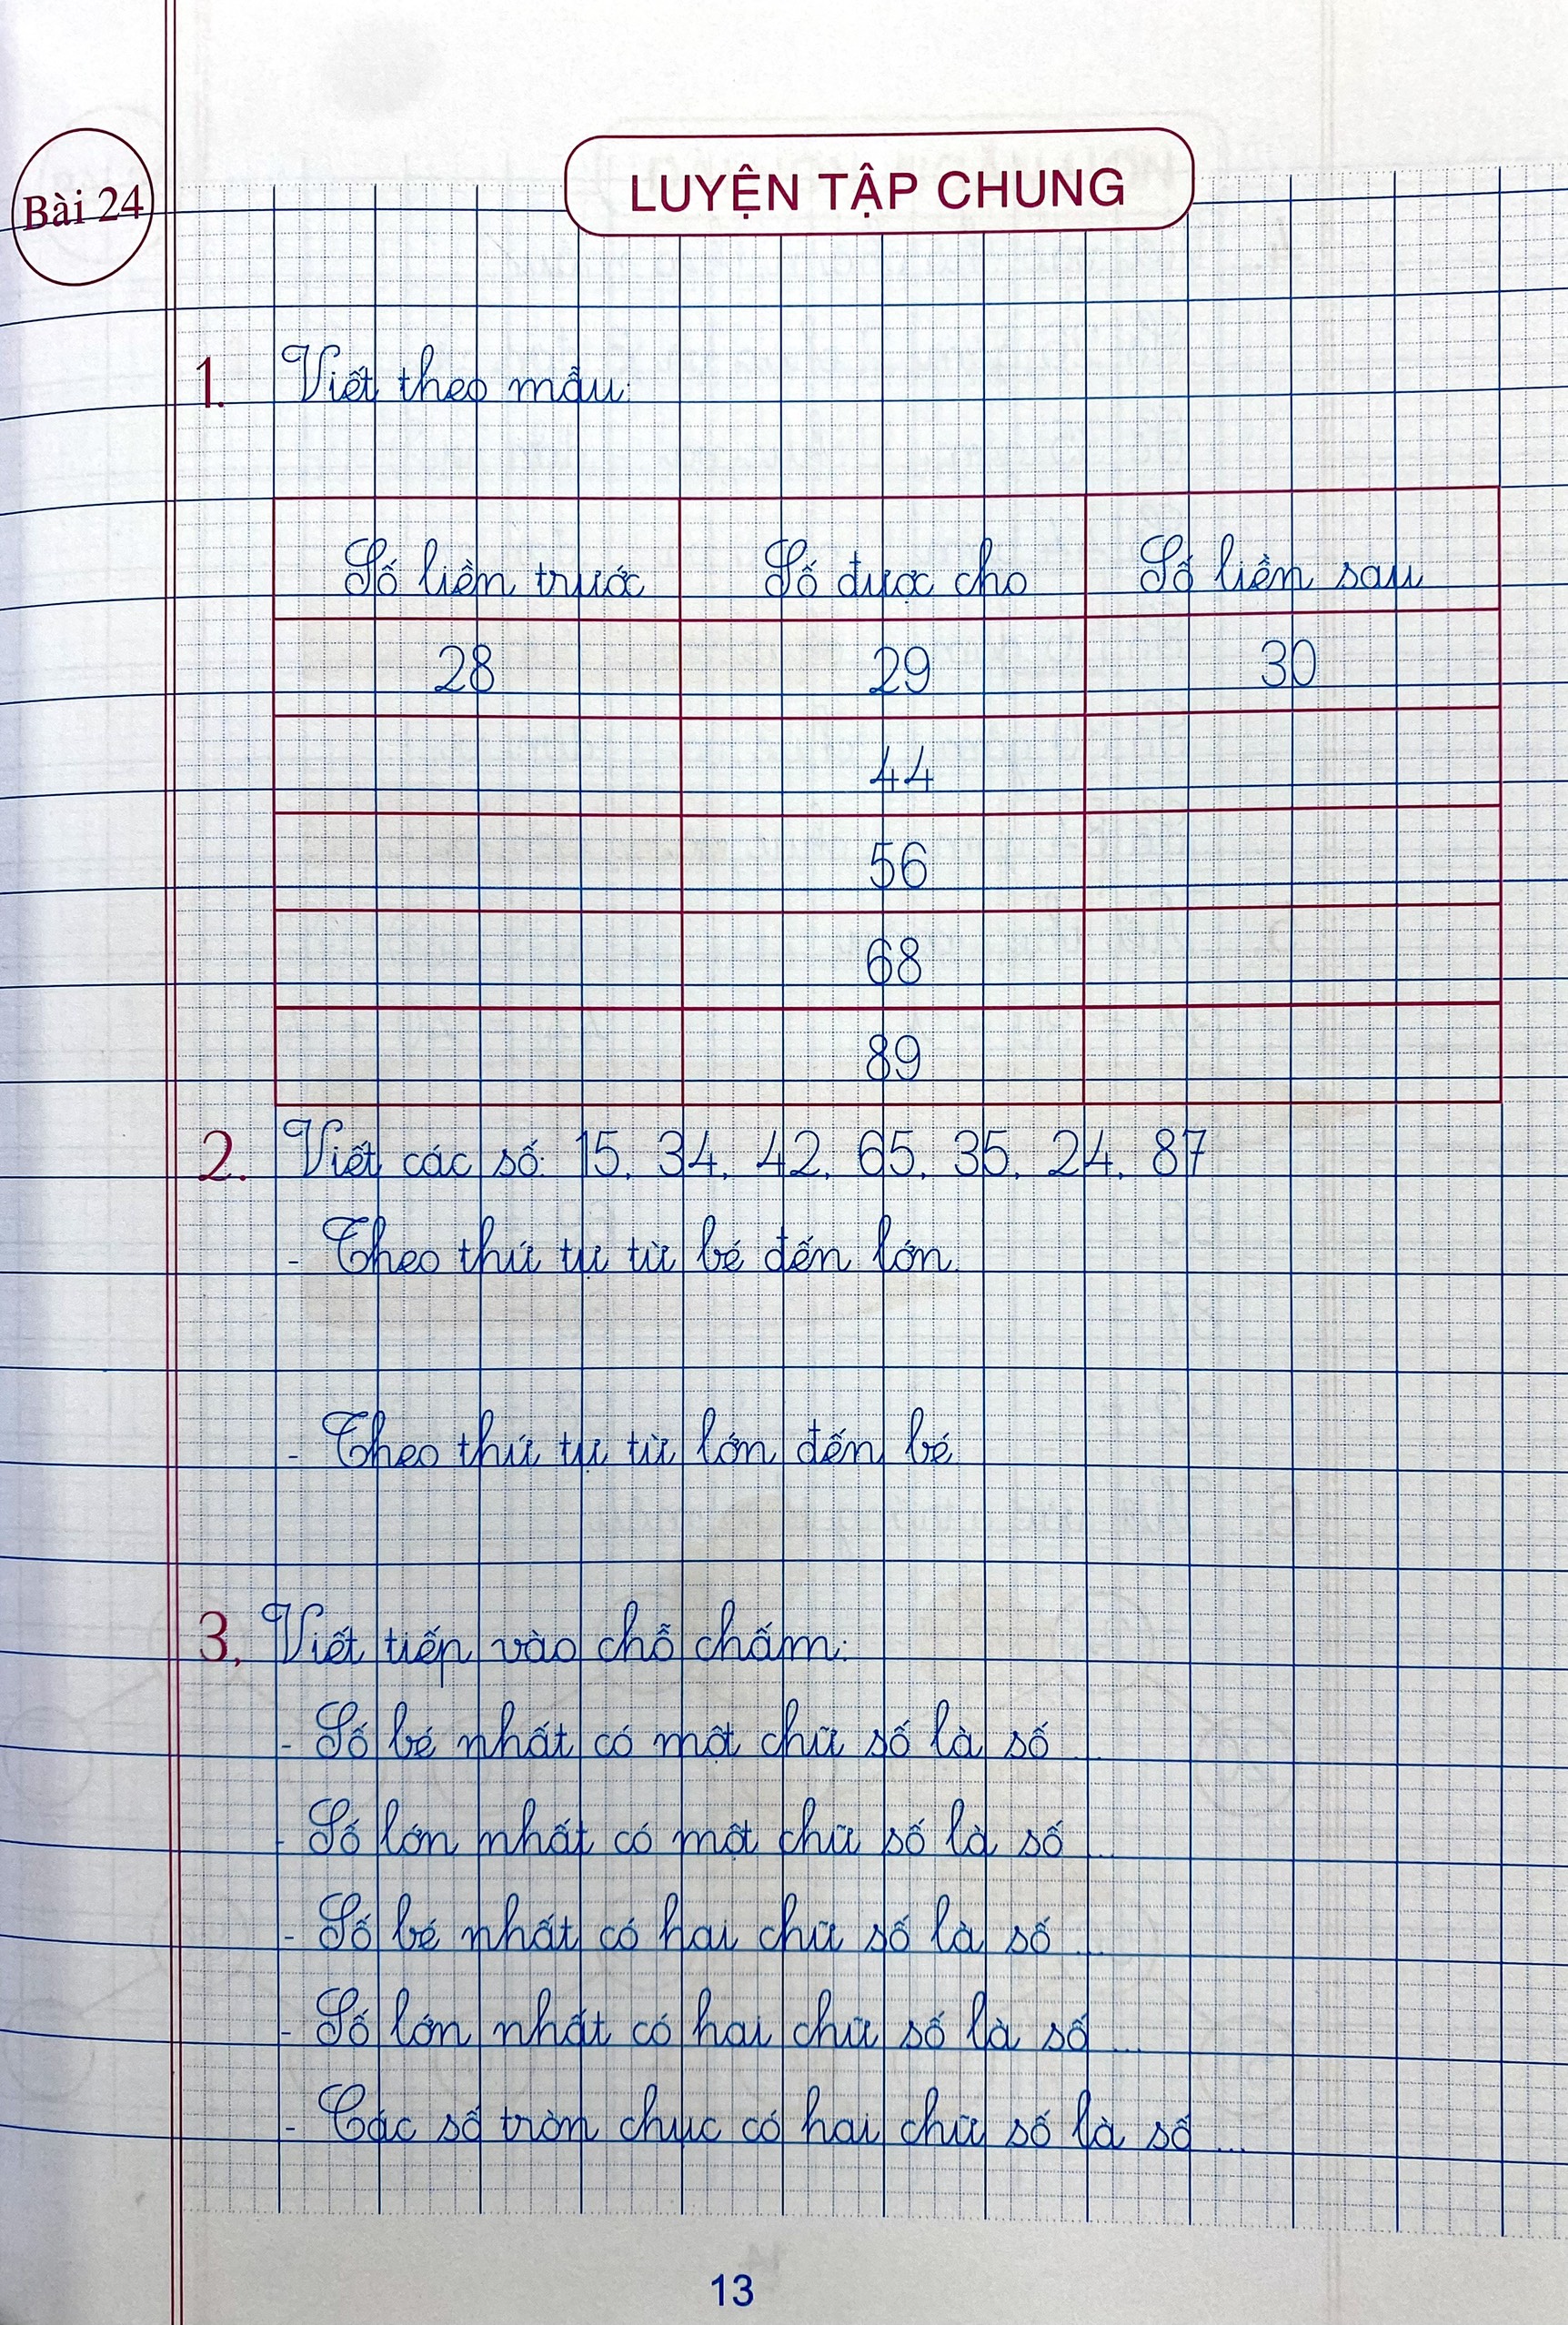 Bài 24
LUYỆN TẬP CHUNG
1. Viết theo mẫu:
Số liền trước Số được cho Số liền sau
28 29 30
44
56
68
89
2. Viết các số: 15, 34, 42, 65, 35, 24, 87
- Theo thứ tự từ bé đến lớn.
- Theo thứ tự từ lớn đến bé
3. Viết tiếp vào chỗ chấm:
- Số bé nhất có một chữ số là số ...
- Số lớn nhất có một chữ số là số ...
- Số bé nhất có hai chữ số là số ...
- Số lớn nhất có hai chữ số là số ...
- Các số tròn chục có hai chữ số là số ...
13